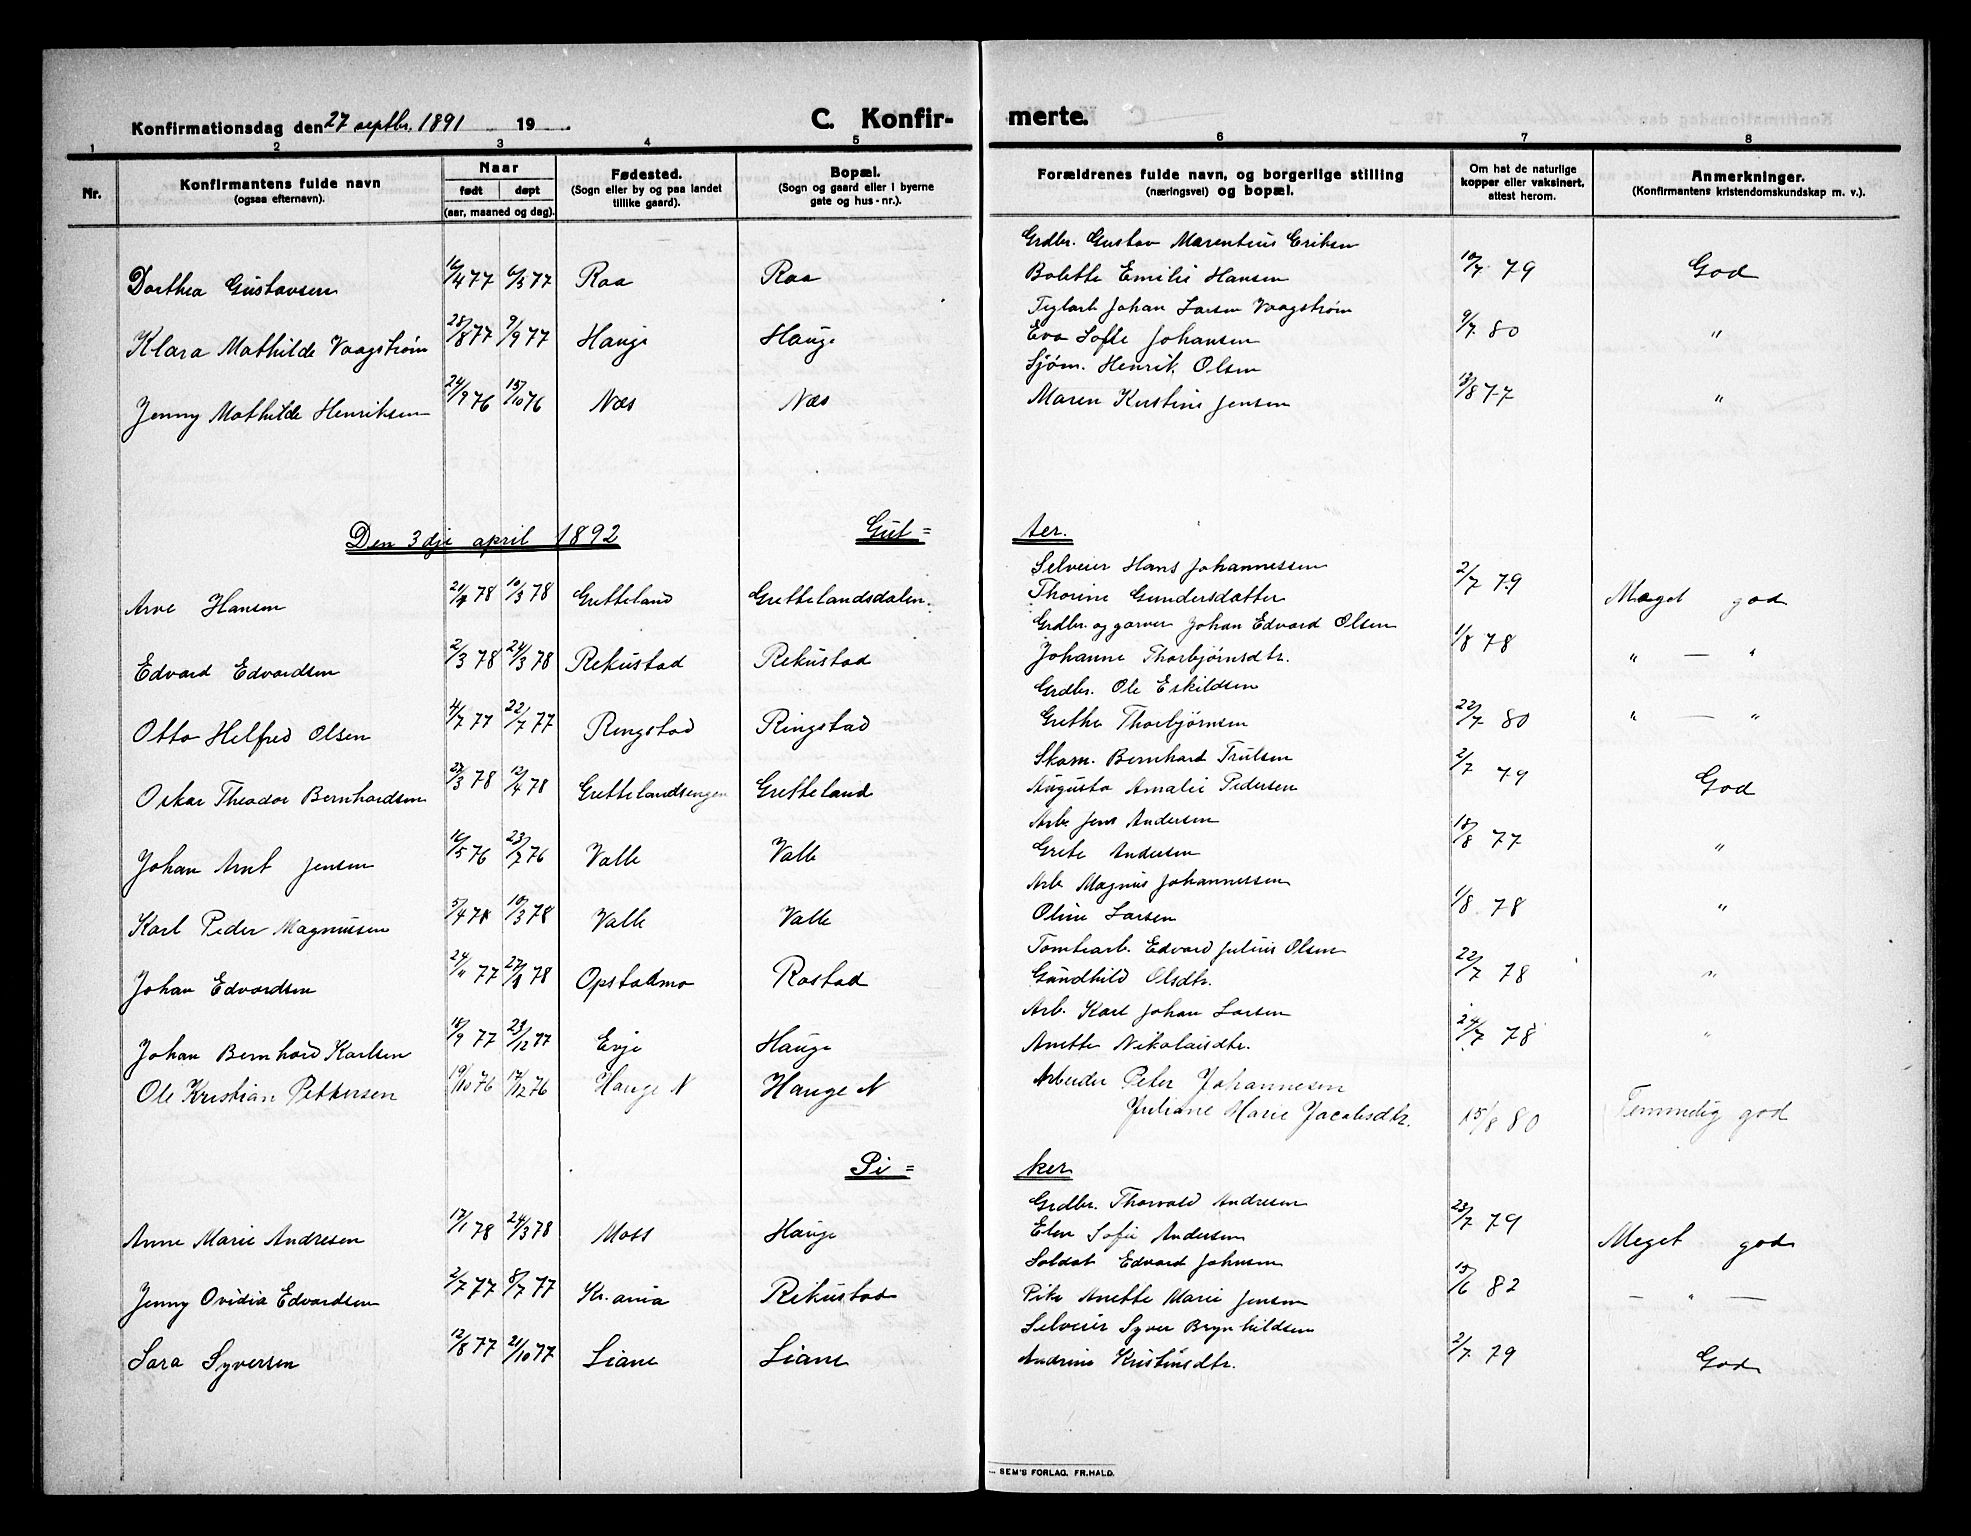 Konfirmationsdag den 27 septbr. 1891 19
C. Konfir-
merte.
1 2 3 4 5 6 7 8
Nr.
Konfirmantens fulde navn
(ogsaa efternavn).
Naar
født døpt
(aar, maaned og dag).
Fødested.
(Sogn eller by og paa landet
tillike gaard).
Bopæl.
(Sogn og gaard eller i byerne
gate og hus-nr.).
Forældrenes fulde navn, og borgerlige stilling
(næringsvei) og bopæl.
Om hat de naturlige
kopper eller vaksinert,
attest herom.
Anmerkninger.
(Konfirmantens kristendomskundskap m. v.).
Grdbr. Gustav Marentius Eriksen
Dorthea Gustavsen 16/4 77 6/5 77 Raa Raa Bolette Emilie Hansen 10/7 79 God
Teglarb. Johan Larsen Vaagstrøm
Klara Mathilde Vaagstrøm 28/8 77 9/9 77 Hauge Hauge Eva Sofie Johansen 9/7 80 "
Sjøm. Henrik Olsen
Jenny Mathilde Henriksen 24/9 76 15/10 76 Næs Næs Maren Kirstine Jensen 13/8 77 "
Den 3dje april 1892 Gut=
ter.
Selveier Hans Johannessen
Arve Hansen 78 10/3 78 Gretteland Grettelandsdalen. Thorine Gundersdatter 2/7 79 Meget god
Grdbr. og garver Johan Edvard Olsen
Edvard Edvardsen 2/3 78 24/3 78 Rekustad Rekustad Johanne Thorbjørnsdtr. 1/8 78 " — "
Grdbr. Ole Eskildsen
Otto Helfred Olsen 4/7 77 22/7 77 Ringstad Ringstad Grethe Thorbjørnsen 22/7 80 " — "
Skom. Bernhard Trulsen
Oskar Theodor Bernhardsen 27/3 78 12/4 78 Grettelandsengen Gretteland Augusta Amalie Pedersen 2/7 79 God
Arb. Jens Andersen
Johan Arnt Jensen 16/5 76 23/7 76 Valle Valle Grete Andersen 18/8 77 "
Arb. Magnus Johannessen
Karl Peder Magnussen 5/4 78 10/3 78 Valle Valle Oline Larsen 1/8 78 "
Tomtearb. Edvard Julius Olsen
Johan Edvardsen 24/11 77 78 Opstadmo Rostad Gundhild Olsdtr. 22/7 78 "
Arb. Karl Johan Larsen
Johan Bernhard Karlsen 18/9 77 23/12 77 Evje Hauge Anette Nikolaisdtr. 24/7 78 "
Arbeider Peter Johannesen
Ole Kristian Pettersen 19/10 76 17/12 76 Hauge N Hauge N Juliane Marie Jacobsdtr. 15/8 80 Temmelig god
Pi=
ker
Grdbr. Thorvald Andresen
Anne Marie Andresen 17/1 78 24/3 78 Moss Hauge Elen Sofie Andersen 23/7 79 Meget god
Soldat Edvard Johnsen
Jenny Ovidia Edvardsen 2/7 77 8/7 77 Kr.ania Rekustad Pike Anette Marie Jensen 15/6 82 — " —
Selveier Syver Brynhildsen
Sara Syversen 12/8 77 21/10 77 Liane Liane Andrine Kristinsdtr. 2/7 79 God
SEM'S FORLAG, FR.HALD.